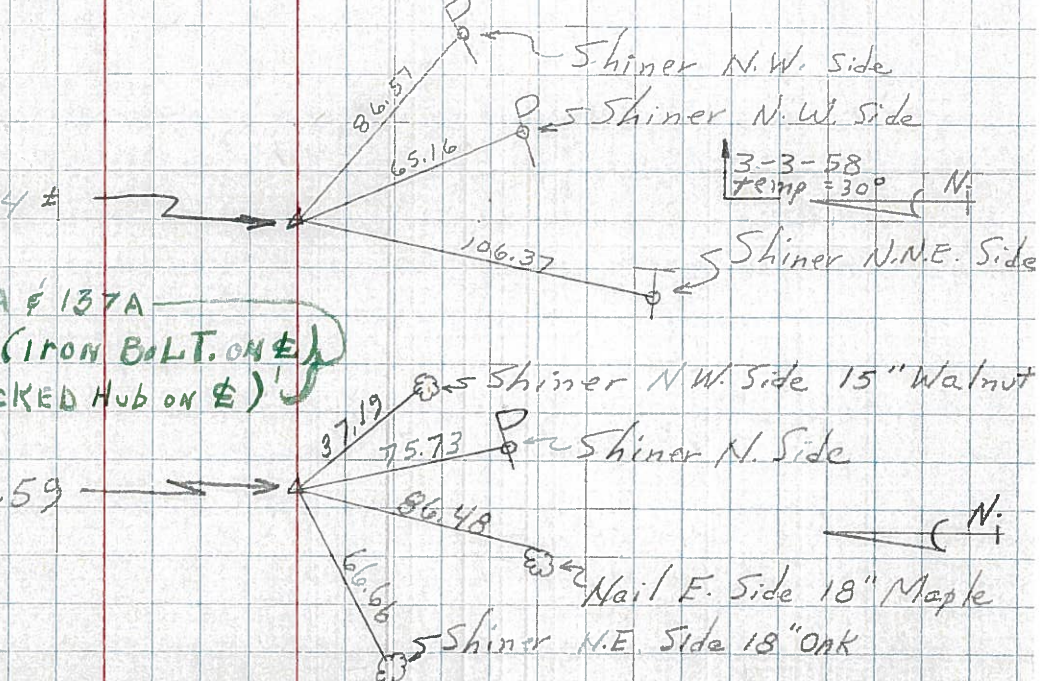 Shiner N.W. Side
86.57
Shiner N.W. Side
65.16
3-3-58
temp = 30°
N.
4 ⅊
106.37
Shiner N.N.E. Side
A & 137A
(IRON BOLT. ON ⅊)
CKED Hub ON ⅊)
Shiner N.W. Side 15" Walnut
37.19
75.73
Shiner N. Side
.59
86.48
N.
Nail E. Side 18" Maple
66.66
Shiner N.E. Side 18" Oak